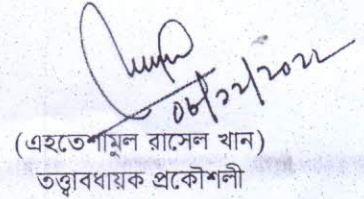 ০৮/১২/২০২২
(এহতেশামুল রাসেল খান)
তত্ত্বাবধায়ক প্রকৌশলী